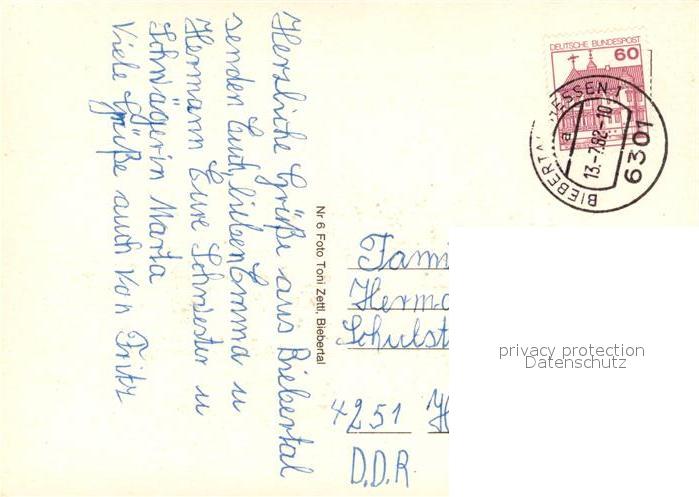 Herzliche Grüße aus Biebertal
senden Euch, lieben Emma u
Hermann Eure Schwester u
Schwägerin Marta
Viele Grüße auch von Fritz
Nr 6 Foto Toni Zettl, Biebertal
DEUTSCHE BUNDESPOST
60
BIEBERTAL HESSEN 1
a
13.-7.82-10
6301
Fami
Herma
Schulst
4251 H
D.D.R.
privacy protection
Datenschutz